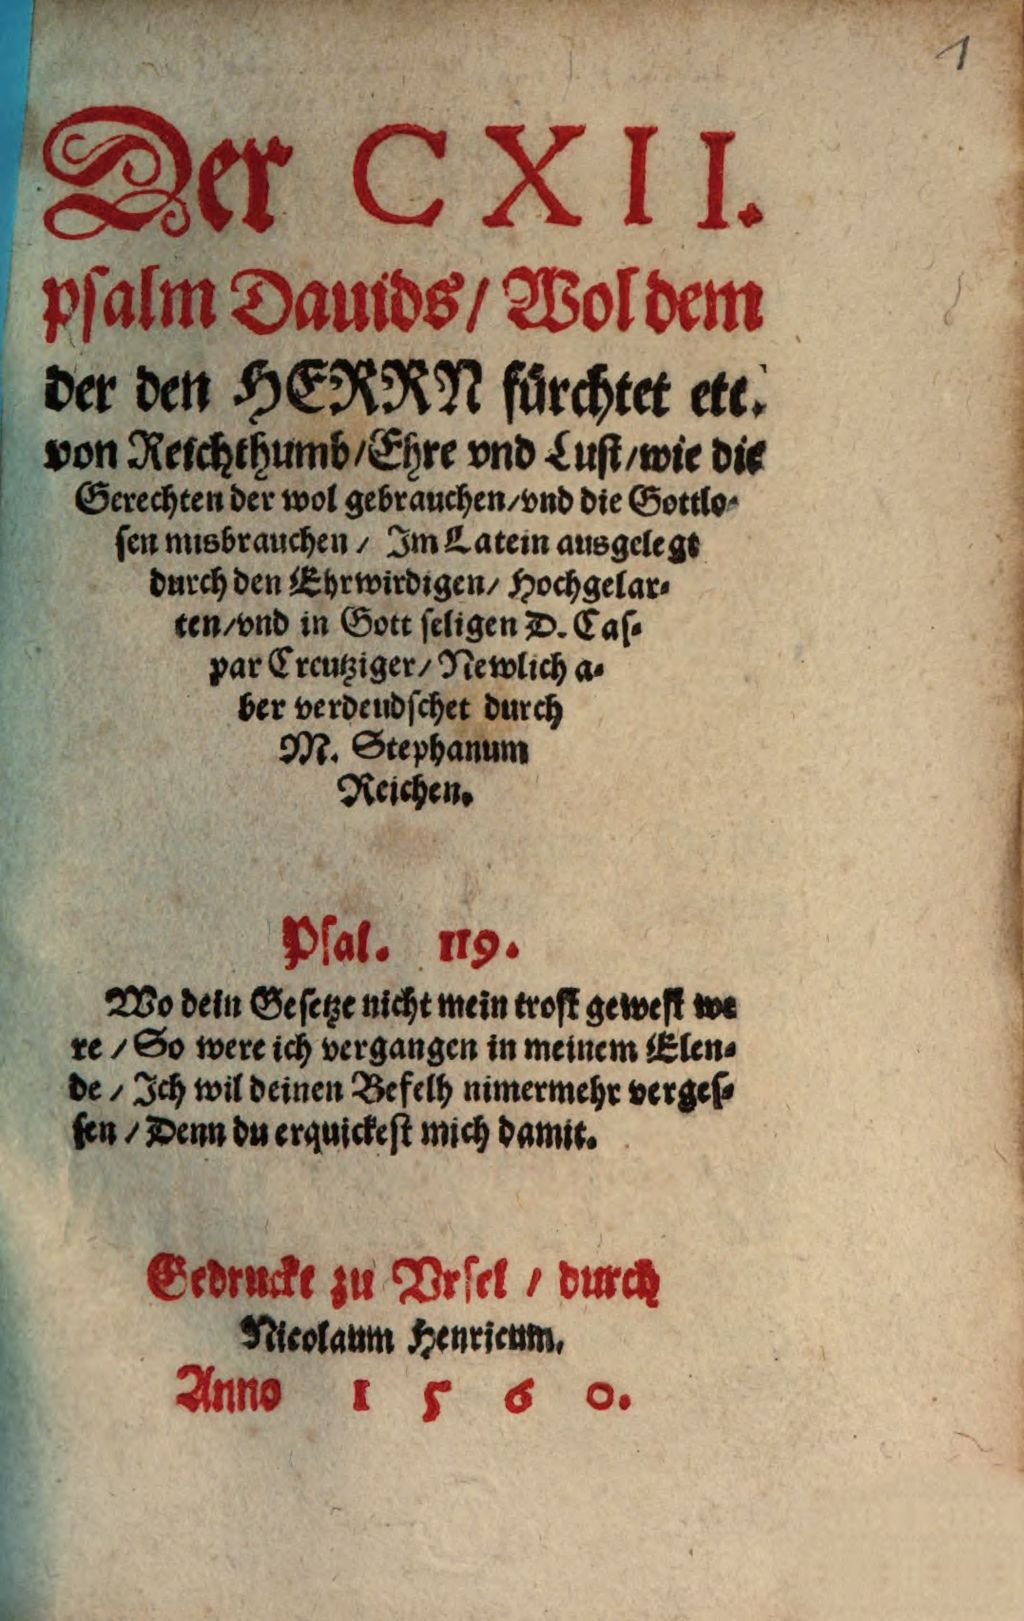 1
Der CXII.
psalm Dauids/ Wol dem
der den HERRN fürchtet etc.
von Reichthumb/Ehre vnd Lust/wie die
Gerechten der wol gebrauchen/vnd die Gottlo-
sen misbrauchen/ Im Latein ausgelegt
durch den Ehrwirdigen/ Hochgelar-
ten/vnd in Gott seligen D. Cas-
par Creutziger/ Newlich a-
ber verdeudschet durch
M. Stephanum
Reichen.
Psal. 119.
Wo dein Gesetze nicht mein trost gewest we
re / So were ich vergangen in meinem Elen-
de / Ich wil deinen Befelh nimermehr verges-
sen / Denn du erquickest mich damit.
Gedruckt zu Vrsel / durch
Nicolaum Henricum.
Anno 1560.